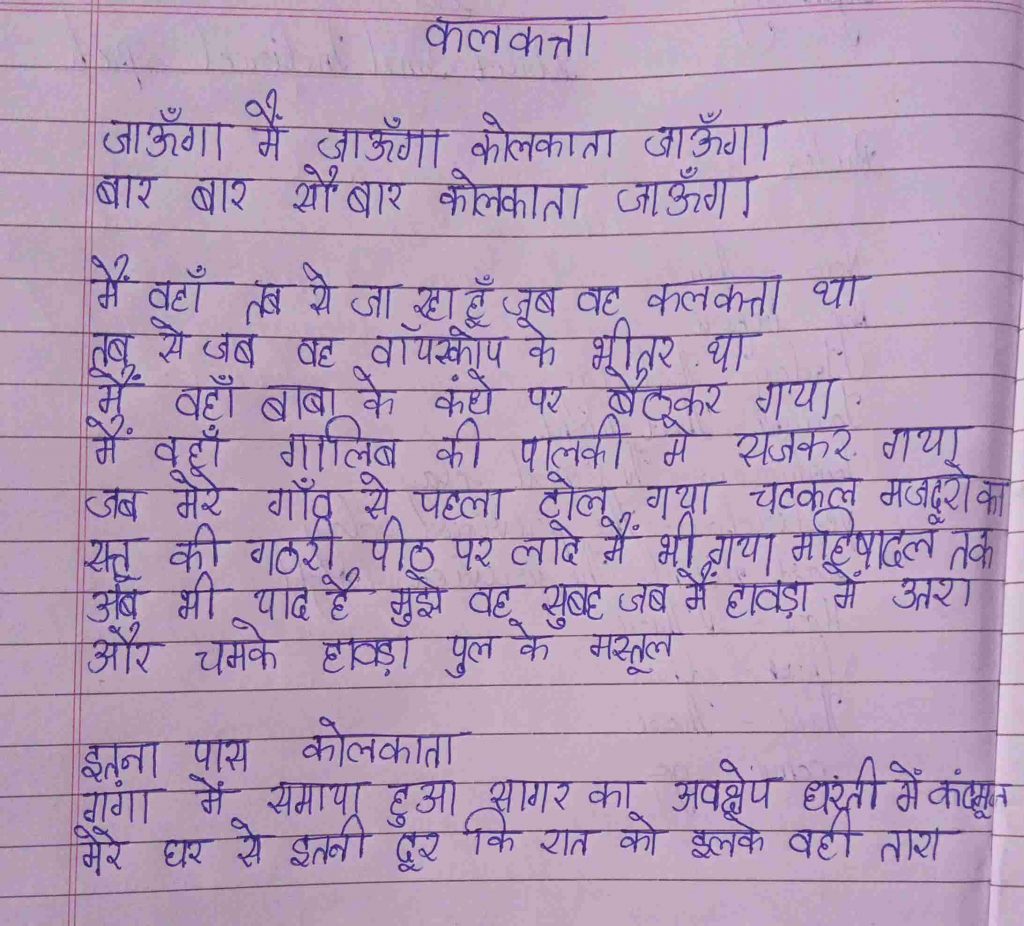 कलकत्ता
जाऊँगा मैं जाऊँगा कोलकाता जाऊँगा
बार बार सौ बार कोलकाता जाऊँगा
मैं वहाँ तब से जा रहा हूँ जब वह कलकत्ता था
तब से जब वह वॉयस्कोप के भीतर था
मैं वहाँ बाबा के कंधे पर बैठकर गया
मैं वहाँ गालिब की पालकी में सजकर गया
जब मेरे गाँव से पहला टोल गया चटकल मजदूरों का
सत्तू की गठरी पीठ पर लादे मैं भी गया महिषादल तक
अब भी याद है मुझे वह सुबह जब मैं हावड़ा में उतरा
और चमके हावड़ा पुल के मस्तूल
इतना पास कोलकाता
गंगा में समाया हुआ सागर का अवक्षेप धरती में कंदमूल
मेरे घर से इतनी दूर कि रात को झलके वही तारा